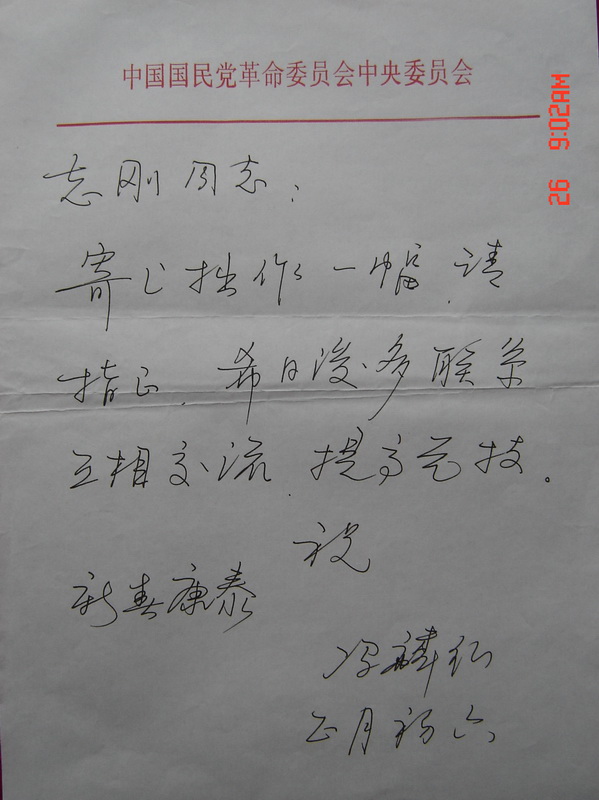 中国国民党革命委员会中央委员会
志刚同志：
寄上拙作一幅，请
指正，希日后多联系
互相交流，提高艺技。
祝
新春康泰
正月初六
26 9:02AM